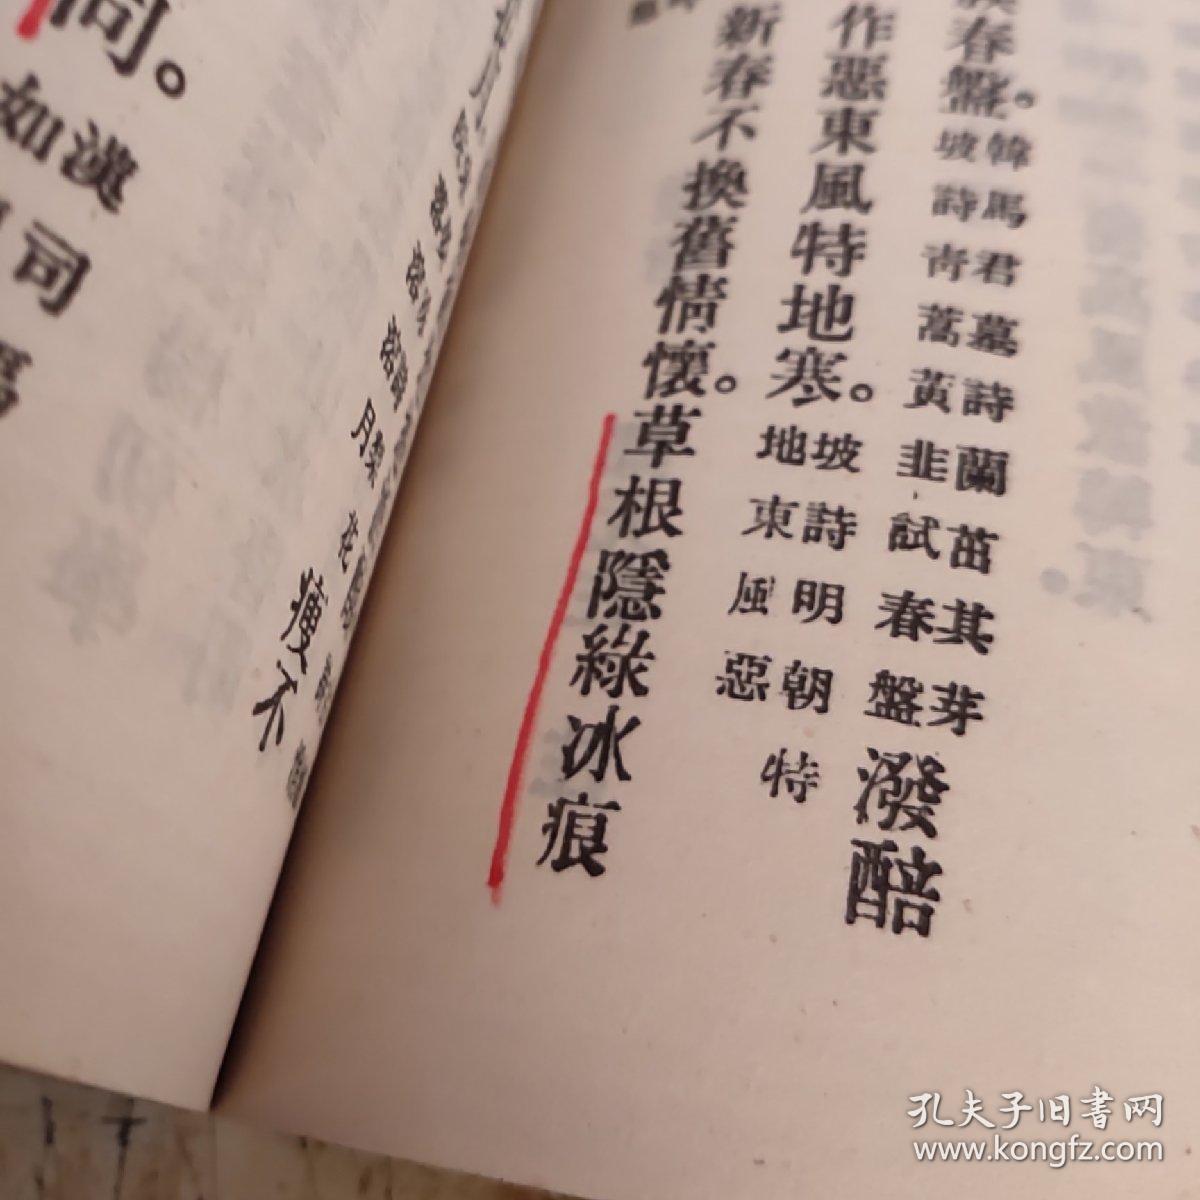 春盤。韓馬君墓詩蘭茁其芽
坡詩青蒿黃韭試春盤
潑醅
作惡東風特地寒。坡詩明朝特
地東風惡
新春不換舊情懷。草根隱綠冰痕
瘦不
同。
如漢
司
馬
孔夫子旧书网
www.kongfz.com